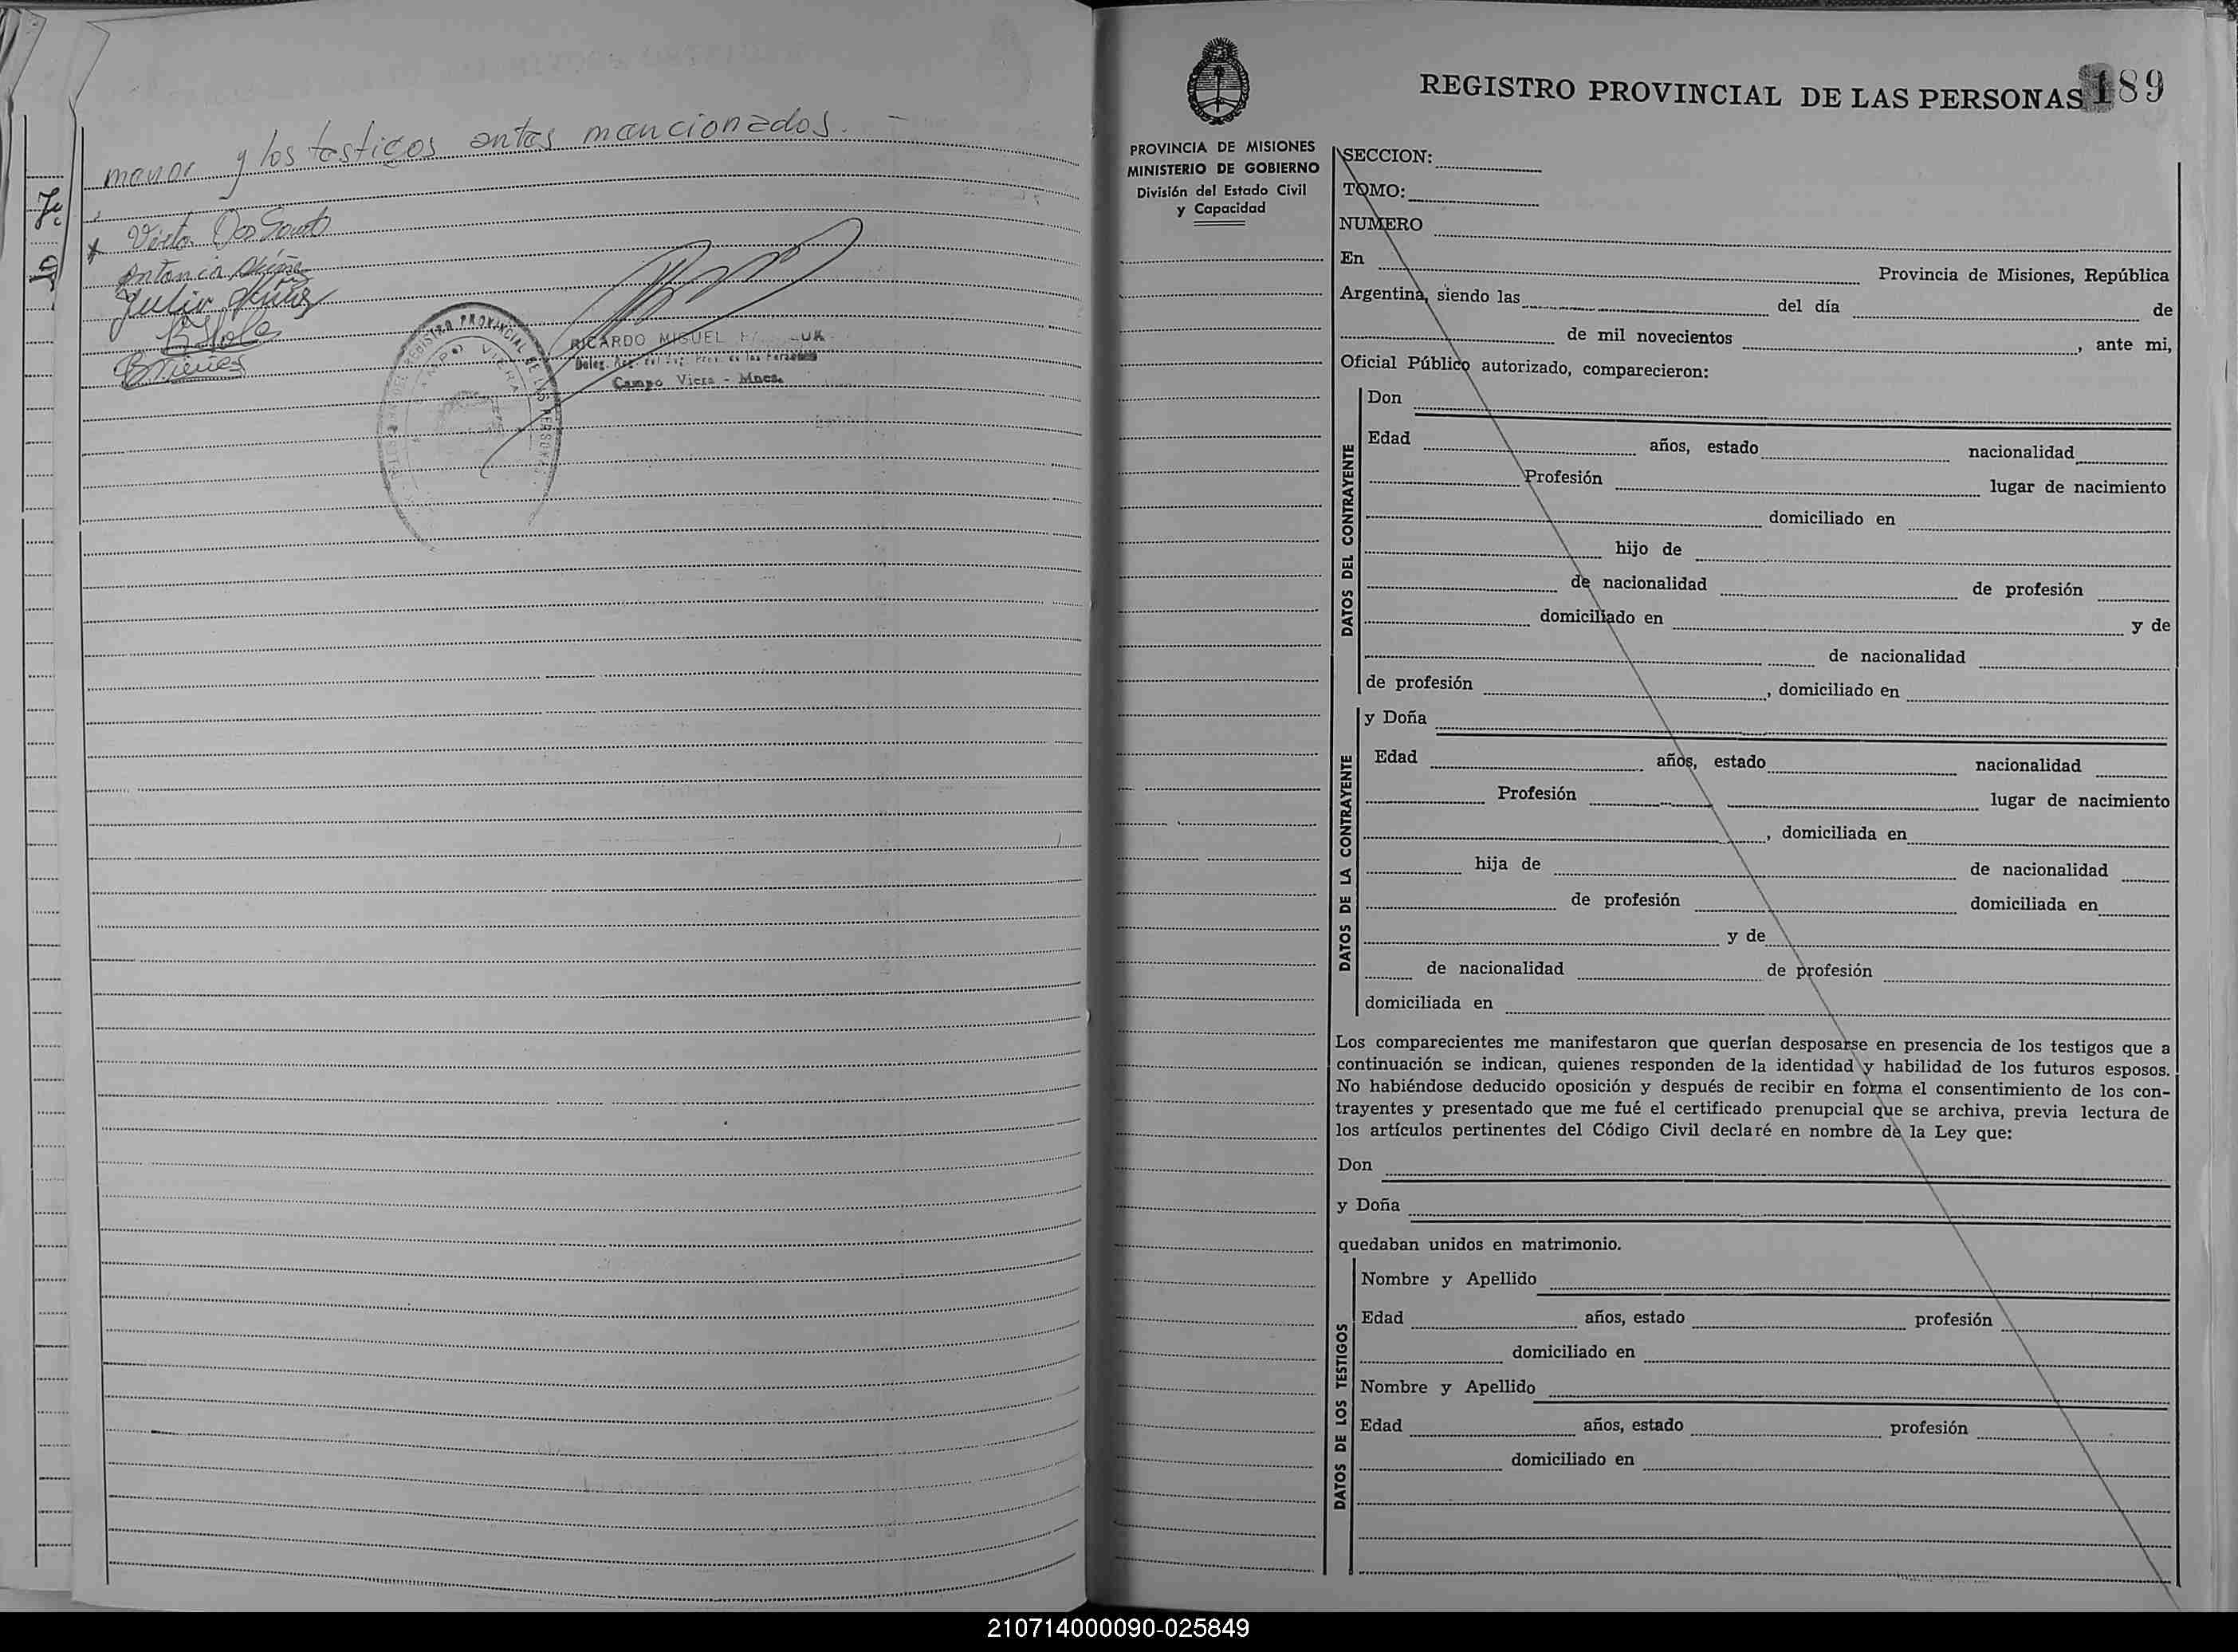 menor y los testigos antes mencionados. -
Antonia
Julio
REGISTRO PROVINCIAL DE LAS PERSONAS
CAMPO VIERA
RICARDO MIGUEL
Deleg. Reg. del Reg. Prov. de las Personas
Campo Viera - Mnes.
REGISTRO PROVINCIAL DE LAS PERSONAS 189
PROVINCIA DE MISIONES
MINISTERIO DE GOBIERNO
División del Estado Civil
y Capacidad
SECCION:
TOMO:
NUMERO
En Provincia de Misiones, República
Argentina, siendo las del día de
de mil novecientos , ante mi,
Oficial Público autorizado, comparecieron:
DATOS DEL CONTRAYENTE
Don
Edad años, estado nacionalidad
Profesión lugar de nacimiento
domiciliado en
hijo de
de nacionalidad de profesión
domiciliado en y de
de nacionalidad
de profesión , domiciliado en
DATOS DE LA CONTRAYENTE
y Doña
Edad años, estado nacionalidad
Profesión lugar de nacimiento
, domiciliada en
hija de de nacionalidad
de profesión domiciliada en
y de
de nacionalidad de profesión
domiciliada en
Los comparecientes me manifestaron que querían desposarse en presencia de los testigos que a
continuación se indican, quienes responden de la identidad y habilidad de los futuros esposos.
No habiéndose deducido oposición y después de recibir en forma el consentimiento de los con-
trayentes y presentado que me fué el certificado prenupcial que se archiva, previa lectura de
los artículos pertinentes del Código Civil declaré en nombre de la Ley que:
Don
y Doña
quedaban unidos en matrimonio.
DATOS DE LOS TESTIGOS
Nombre y Apellido
Edad años, estado profesión
domiciliado en
Nombre y Apellido
Edad años, estado profesión
domiciliado en
210714000090-025849